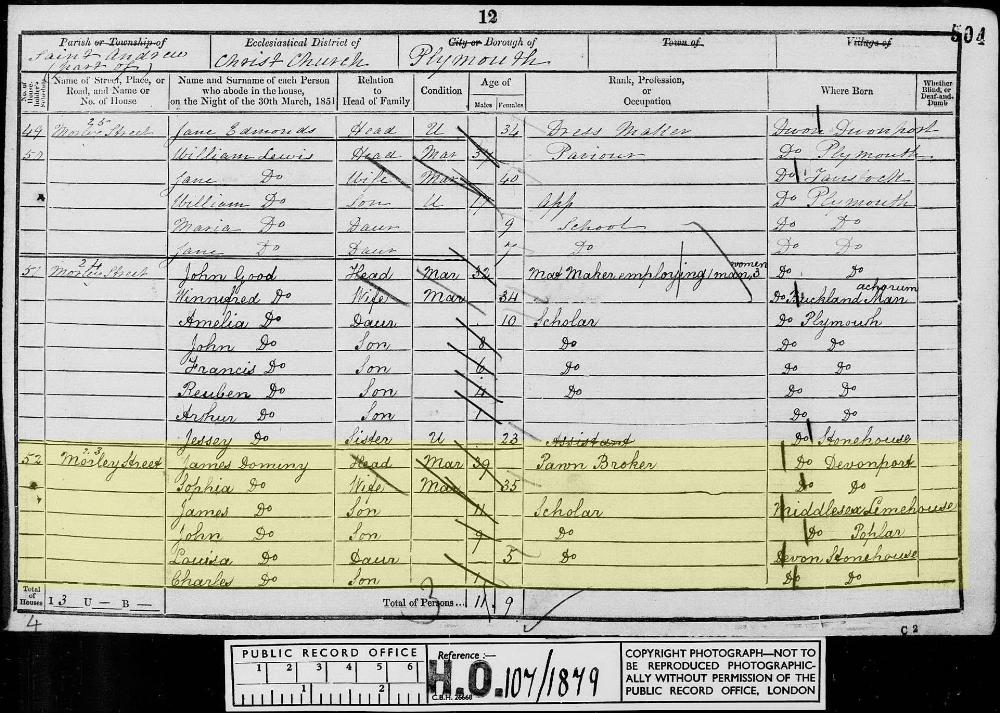 12
504
Parish or Township of
Saint Andrew
(part of)
Ecclesiastical District of
Christ Church
City or Borough of
Plymouth
Town of
Village of
No. of House-holder's Schedule
Name of Street, Place, or Road, and Name or No. of House
Name and Surname of each Person who abode in the house, on the Night of the 30th March, 1851
Relation to Head of Family
Condition
Age of
Males Females
Rank, Profession, or Occupation
Where Born
Whether Blind, or Deaf-and-Dumb
49 25 Morley Street Jane Edmonds Head U 34 Dress Maker Devon Devonport
50 William Lewis Head Mar 37 Paviour Do Plymouth
Jane Do Wife Mar 40 Do Tavistock
William Do Son U 17 App Do Plymouth
Maria Do Daur 9 School Do Do
Jane Do Daur 7 Do Do Do
51 24 Morley Street John Good Head Mar 32 Mat Maker employing 1 man, 3 women Do Do
Winnifred Do Wife Mar 34 Do Buckland Mon achorum
Amelia Do Daur 10 Scholar Do Plymouth
John Do Son 8 Do Do Do
Francis Do Son 6 Do Do Do
Reuben Do Son 4 Do Do Do
Arthur Do Son 1 Do Do
Jessey Do Sister U 23 Assistant Do Stonehouse
52 23 Morley Street James Dominy Head Mar 39 Pawn Broker Do Devonport
Sophia Do Wife Mar 35 Do Do
James Do Son 11 Scholar Middlesex Limehouse
John Do Son 9 Do Do Poplar
Louisa Do Daur 5 Do Devon Stonehouse
Charles Do Son 1 Do Do
Total of Houses I 3 U — B —
Total of Persons... 11 9
3
4
C 2
PUBLIC RECORD OFFICE
1 2 3 4 5 6
1 2
Reference:—
H.O. 107/1879
C.B.H. 26668
COPYRIGHT PHOTOGRAPH—NOT TO
BE REPRODUCED PHOTOGRAPHIC-
ALLY WITHOUT PERMISSION OF THE
PUBLIC RECORD OFFICE, LONDON